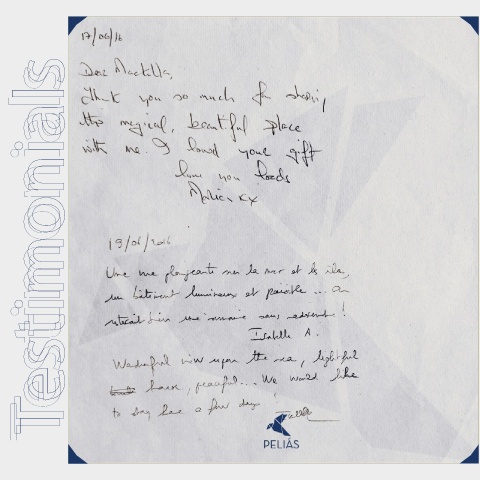 Testimonials
17/06/16
Dear
Thank you so much for sharing
this magical, beautiful place
with me. I loved your gift
love you loads
xx
19/06/2016
Une vue plongeante sur la mer et les îles,
un bâtiment lumineux et paisible ... on
resterait bien une semaine sans !
Isabelle A.
Wonderful view upon the sea, lightful
house, peaceful... We would like
to stay here a few days!
Isabelle
PELIÁS